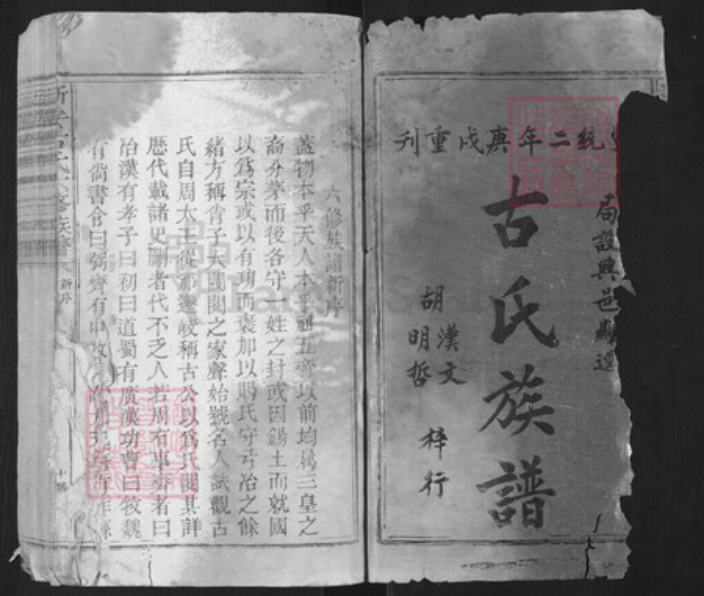 統二年庚戌重刊
局設興邑
古氏族譜
胡漢文
明哲
梓行
六修族譜新序
蓋物本乎天人本乎祖五帝以前均屬三皇之
裔分茅而後各守一姓之封或因錫土而就國
以為宗或以有功而褒加以賜氏守弓冶之餘
緒方稱肖子大閥閱之家聲始號名人試觀古
氏自周太王從邠遷岐稱古公以為氏閱其詳
歷代載諸史冊者代不乏人若周有事齊者曰
冶漢有孝子曰初曰道蜀有廣漢功曹曰牧魏
有尚書令曰弼齊有中
族譜
新序